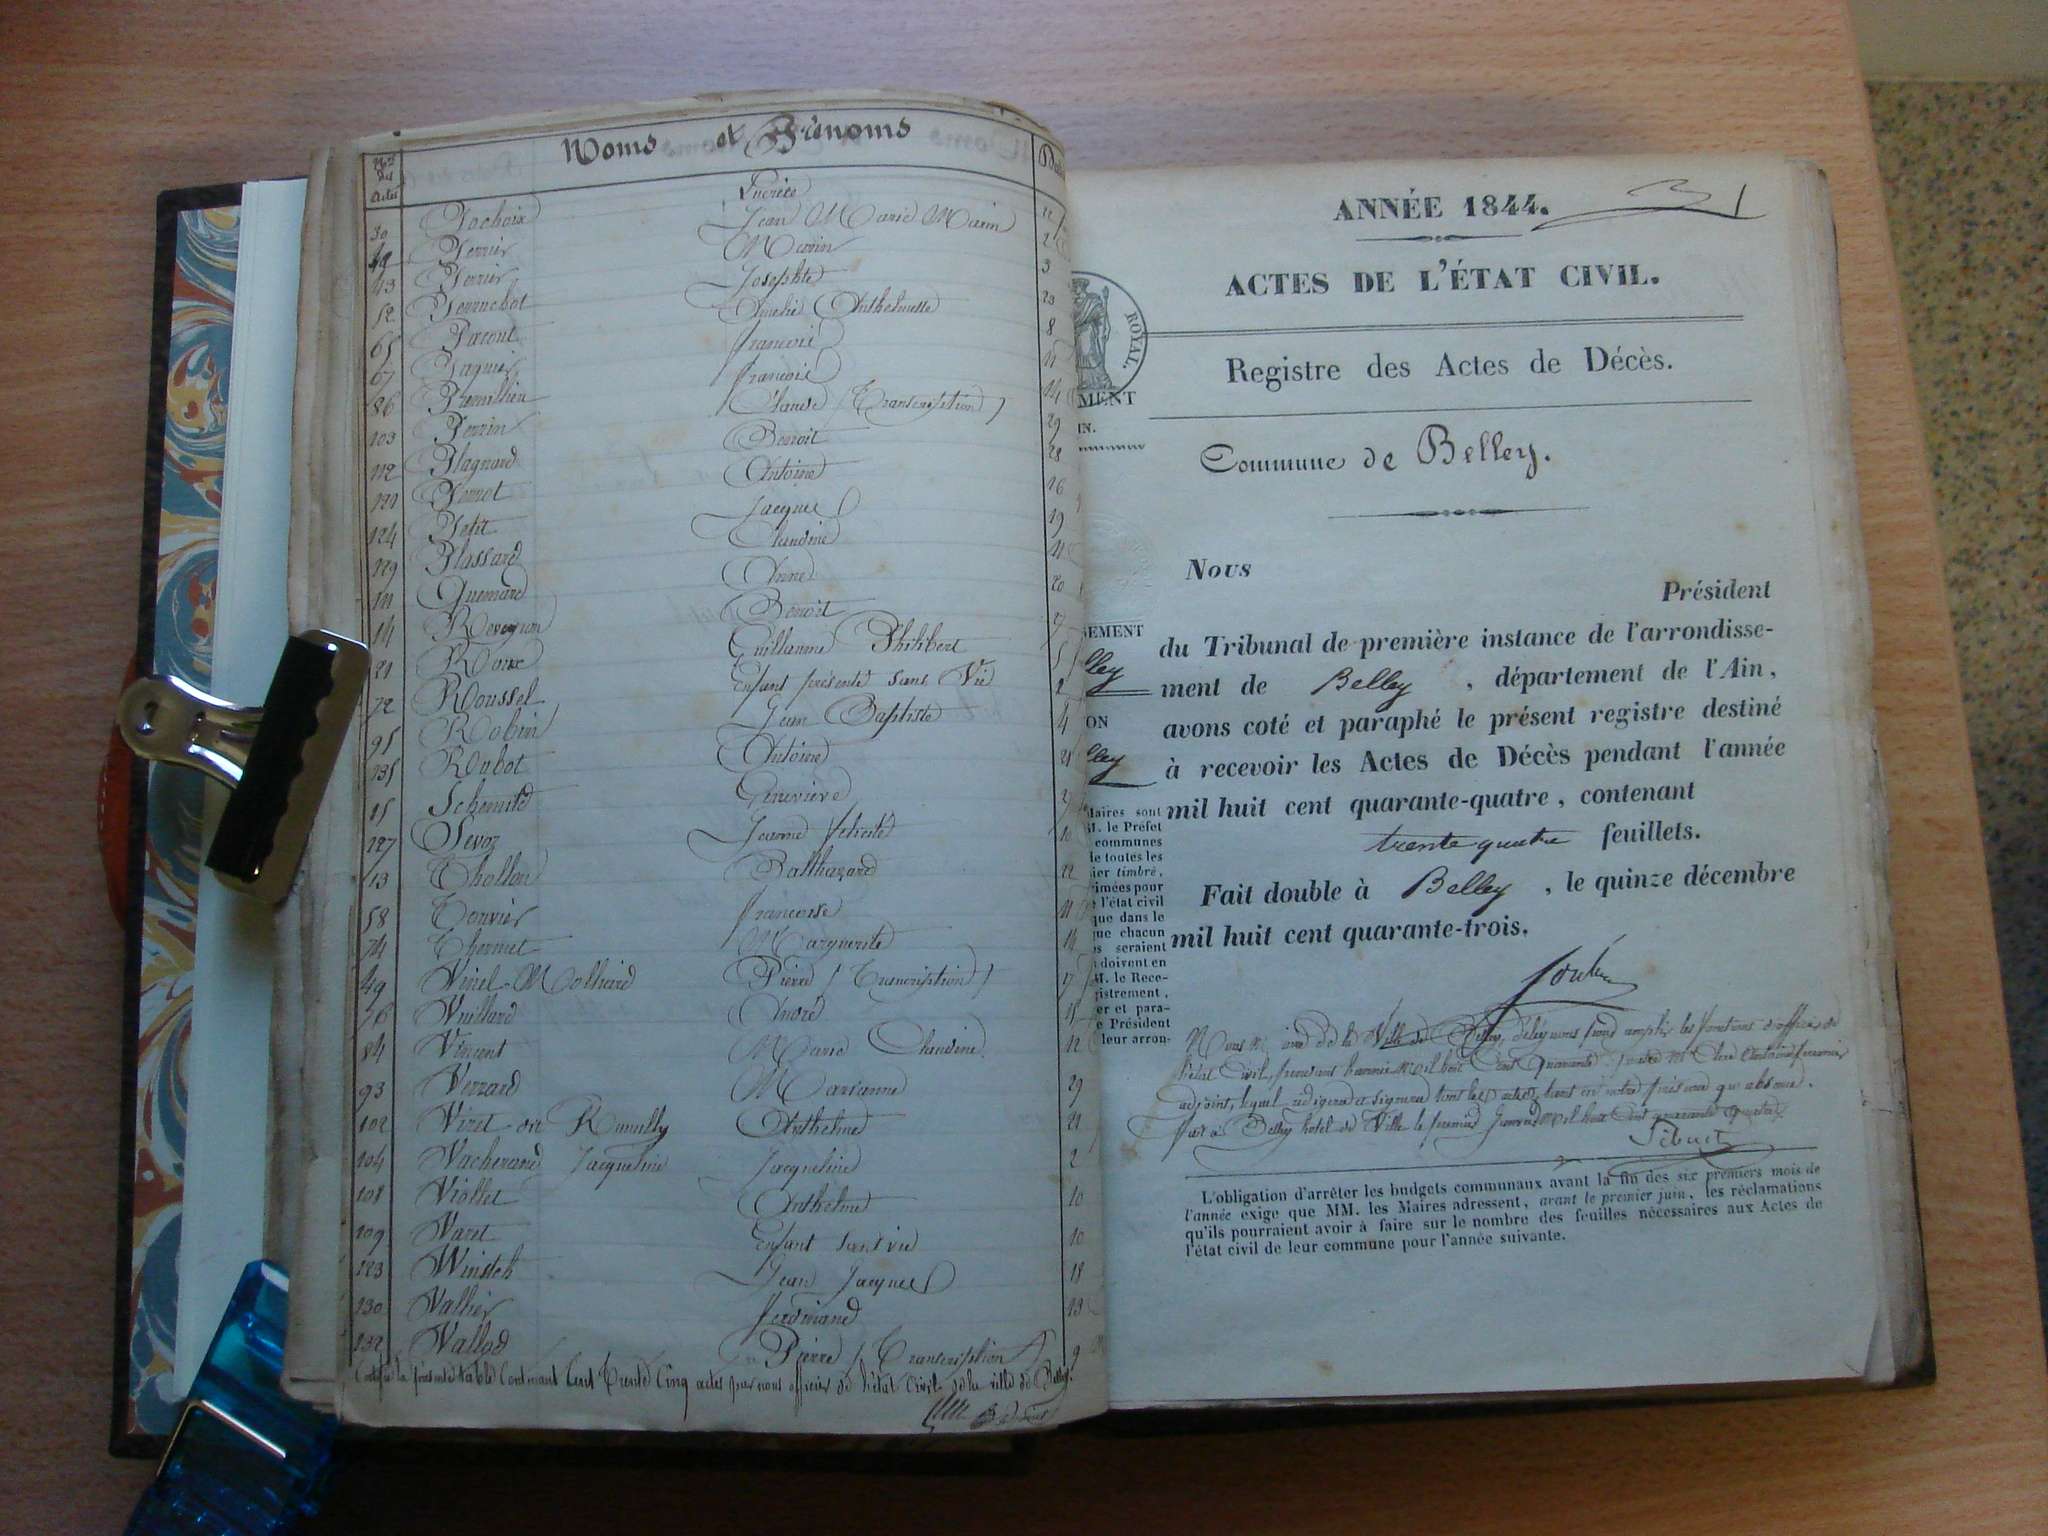 Nos des Actes
Noms et Prénoms
30 Pochoix Lucrèce 22
Perrier Jean Marie Marin 2
43 Perrier Marin 3
52 Josephte 23
65 Parout Amélie Anthelmette 8
67 Paquier François 11
86 Premillieu François 14
103 Perrin Claude (Transcription) 29
112 Plagnard Benoit 28
121 Pernet Antoine 16
124 Petit Jacques 19
129 Plassard Claudine 11
111 Quemard Anne 20
14 Reveyron Benoit 27
21 Roux Guillaume Philibert 5
72 Roussel Enfant présenté sans Vie 2
95 Robin Jean Baptiste 4
135 Rubot Antoine 21
15 Schmitd Geneviève 2
127 Sevoz Jeanne félicité 10
13 Thollon Balthazard 22
58 Touvier françoise 11
74 Thermet Marguerite 14
49 Vinel-Molliard Pierre (Transcription) 17
56 Vuillard André 15
84 Vincent Marie Claudine 12
93 Verrard Marianne 29
102 Viret dit Rumilly Anthelme 21
104 Vacherand Jacqueline Jacqueline 2
108 Viollet Anthelme 10
109 Varet Enfant sans vie 10
123 Winsteh Jean Jacques 18
130 Vallier ferdinand 13
132 Vallod Pierre (Transcription) 9
Certifié la présente table Contenant Cent Trente Cinq actes par nous officier de l'état Civil de la ville de Belley.
ANNÉE 1844.
ACTES DE L'ÉTAT CIVIL.
ROYAL.
Registre des Actes de Décès.
MENT
IN.
Commune de Belley.
Nous
Président
SEMENT
du Tribunal de première instance de l'arrondisse-
lley
ment de Belley , département de l'Ain,
ON
avons coté et paraphé le présent registre destiné
lley
à recevoir les Actes de Décès pendant l'année
mil huit cent quarante-quatre, contenant
trente quatre feuillets.
Fait double à Belley , le quinze décembre
mil huit cent quarante-trois.
Maires sont
M. le Préfet
communes
de toutes les
ier timbré,
rimées pour
l'état civil
que dans le
que chacun
s seraient
doivent en
M. le Rece-
gistrement,
er et para-
e Président
leur arron-
Nous Maire de la Ville de Belley, déléguons pour remplir les fonctions d'officier de
l'état Civil, pendant l'année mil huit Cent Quarante
adjoint, lequel rédigera et signera tous les actes, tant en notre présence qu'absence.
fait à Belley hotel de Ville le premier Janvier mil huit Cent quarante quatre
L'obligation d'arrêter les budgets communaux avant la fin des six premiers mois de
l'année exige que MM. les Maires adressent, avant le premier juin, les réclamations
qu'ils pourraient avoir à faire sur le nombre des feuilles nécessaires aux Actes de
l'état civil de leur commune pour l'année suivante.